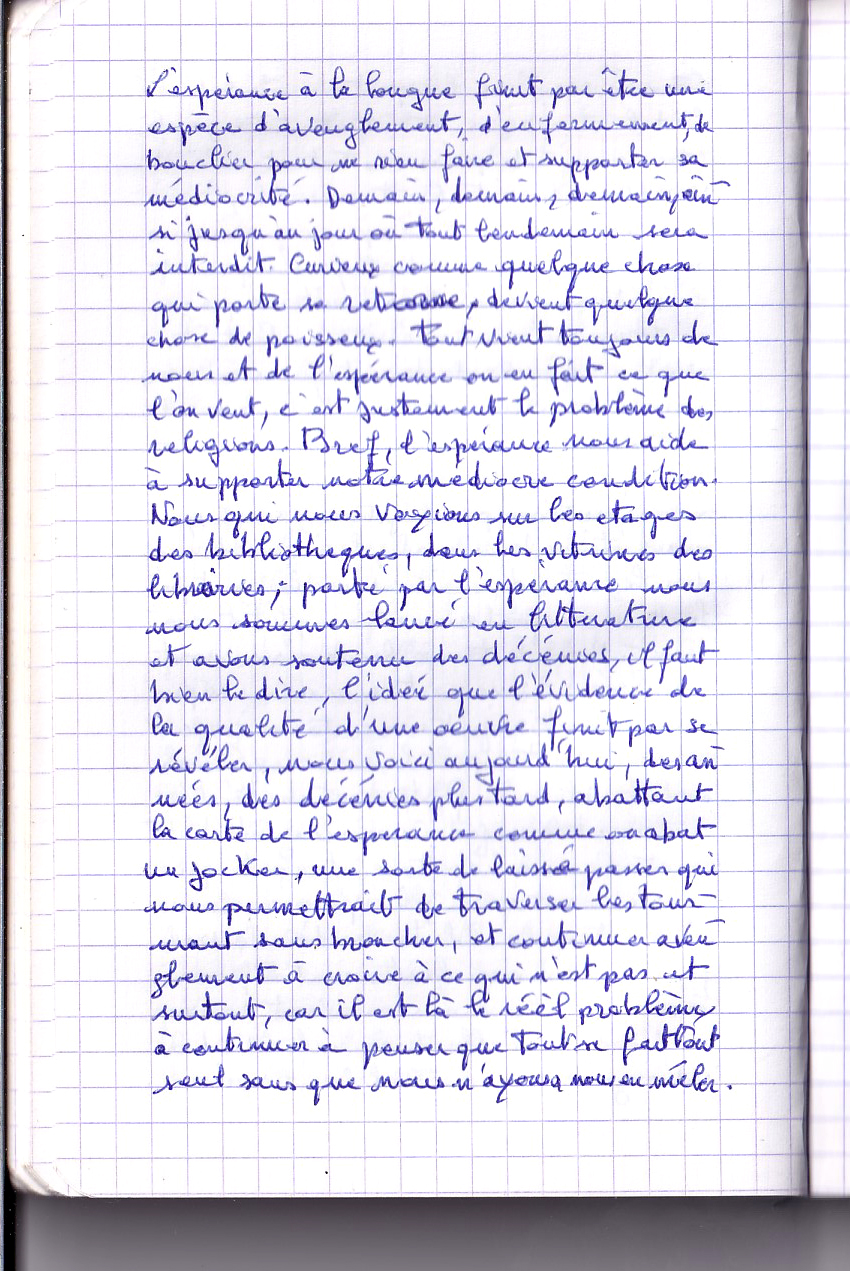 L'espérance à la longue finit par être une
espèce d'aveuglement, d'enfermement, de
bouclier pour ne rien faire et supporter sa
médiocrité. Demain, demain, demain, ain
si jusqu'au jour où tout lendemain sera
interdit. Curieux comme quelque chose
qui porte sa devient quelque
chose de poisseux. Tout vient toujours de
nous et de l'espérance on en fait ce que
l'on veut, c'est justement le problème des
religions. Bref, l'espérance nous aide
à supporter notre médiocre condition.
Nous qui nous voyions sur les etages
des bibliotheques, dans les vitrines des
librairies, porté par l'espérance nous
nous sommes lancé en litterature
et avons soutenu des décénies, il faut
bien le dire, l'ideé que l'évidence de
la qualité d'une oeuvre finit par se
révéler, nous voici aujourd'hui, des an
nées, des décénies plus tard, abattant
la carte de l'esperance comme on abat
un jocker, une sorte de laissé passer qui
nous permettrait de traverser les tour-
ment sans broncher, et continuer aveu
glement à croire à ce qui n'est pas et
surtout, car il est là le réèl problème,
à continuer à penser que tout se fait tout
seul sans que nous n'ayons à nous en mêler.